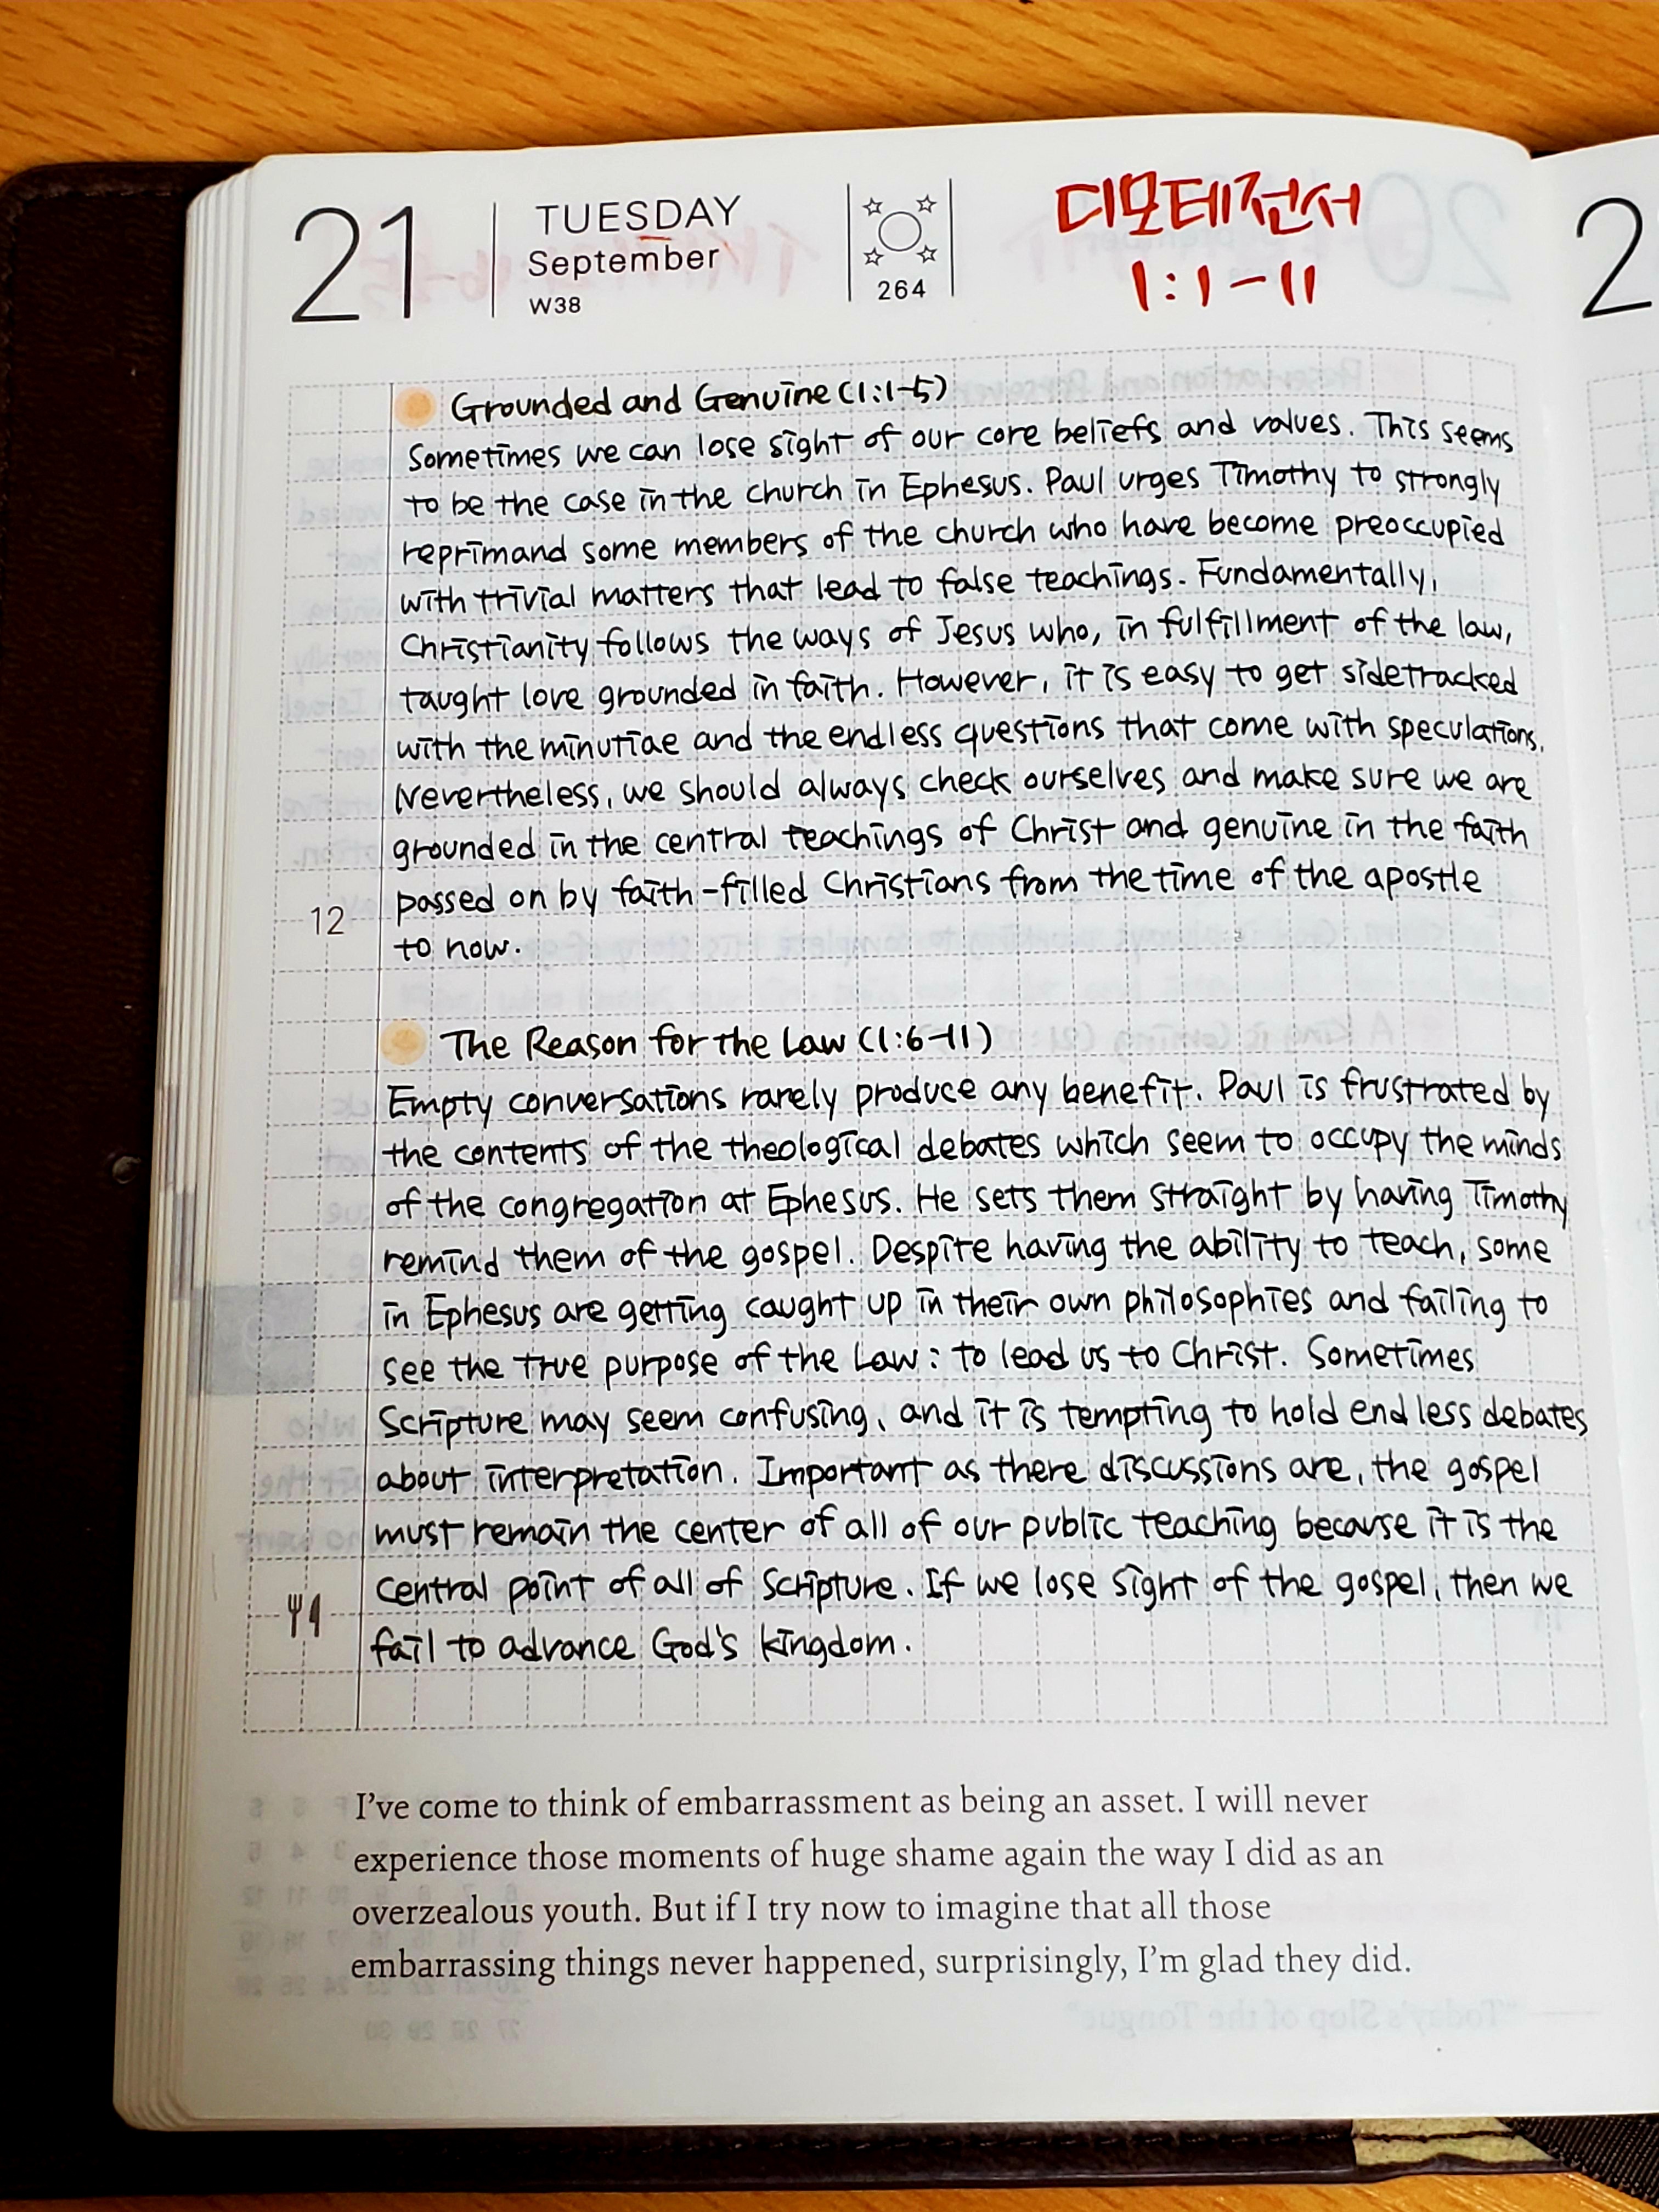 21
TUESDAY
September
W38
264
디모데전서
1:1-11
2
Grounded and Genuine (1:1-5)
Sometimes we can lose sight of our core beliefs and values. This seems
to be the case in the church in Ephesus. Paul urges Timothy to strongly
reprimand some members of the church who have become preoccupied
with trivial matters that lead to false teachings. Fundamentally,
Christianity follows the ways of Jesus who, in fulfillment of the law,
taught love grounded in faith. However, it is easy to get sidetracked
with the minutiae and the endless questions that come with speculations.
Nevertheless, we should always check ourselves and make sure we are
grounded in the central teachings of Christ and genuine in the faith
passed on by faith-filled Christians from the time of the apostle
12
to now.
The Reason for the Law (1:6-11)
Empty conversations rarely produce any benefit. Paul is frustrated by
the contents of the theological debates which seem to occupy the minds
of the congregation at Ephesus. He sets them straight by having Timothy
remind them of the gospel. Despite having the ability to teach, some
in Ephesus are getting caught up in their own philosophies and failing to
see the true purpose of the Law: to lead us to Christ. Sometimes
Scripture may seem confusing, and it is tempting to hold endless debates
about interpretation. Important as there discussions are, the gospel
must remain the center of all of our public teaching because it is the
central point of all of Scripture. If we lose sight of the gospel, then we
fail to advance God's kingdom.
I've come to think of embarrassment as being an asset. I will never
experience those moments of huge shame again the way I did as an
overzealous youth. But if I try now to imagine that all those
embarrassing things never happened, surprisingly, I'm glad they did.